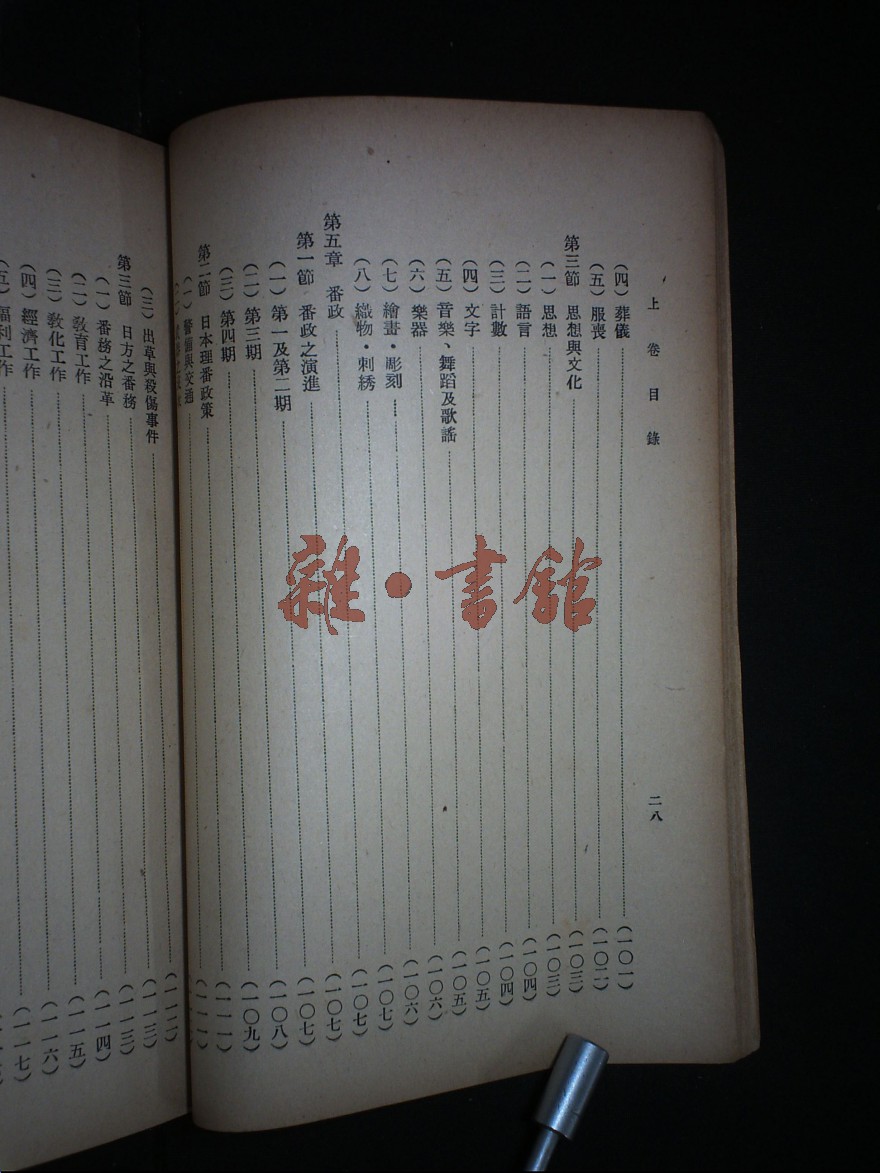 上卷目錄 二八
(四) 葬儀 (一〇一)
(五) 服喪 (一〇二)
第三節 思想與文化 (一〇三)
(一) 思想 (一〇三)
(二) 語言 (一〇四)
(三) 計數 (一〇四)
(四) 文字 (一〇五)
(五) 音樂、舞蹈及歌謠 (一〇五)
(六) 樂器 (一〇六)
(七) 繪畫・彫刻 (一〇六)
(八) 織物・刺綉 (一〇七)
第五章 番政 (一〇七)
第一節 番政之演進 (一〇七)
(一) 第一及第二期 (一〇七)
(二) 第三期 (一〇八)
(三) 第四期 (一〇九)
第二節 日本理番政策 (一一一)
(一) 警備與交通 (一一一)
(三) 出草與殺傷事件 (一一二)
第三節 日方之番務 (一一三)
(一) 番務之沿革 (一一三)
(二) 教育工作 (一一四)
(三) 教化工作 (一一五)
(四) 經濟工作 (一一六)
(五) 福利工作 (一一七)
雜・書舘